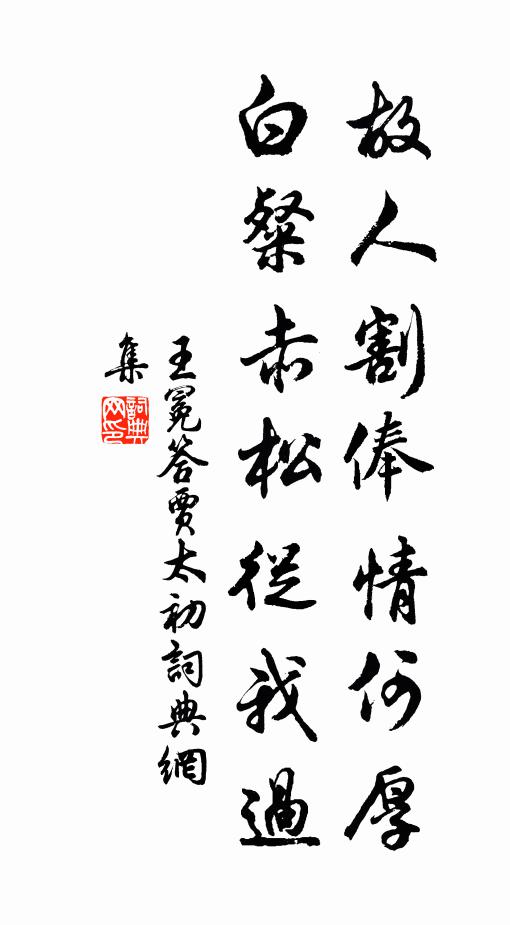 故人割俸情何厚
白粲赤松從我過
王冕答賈太初詞典網
集
詞典網印